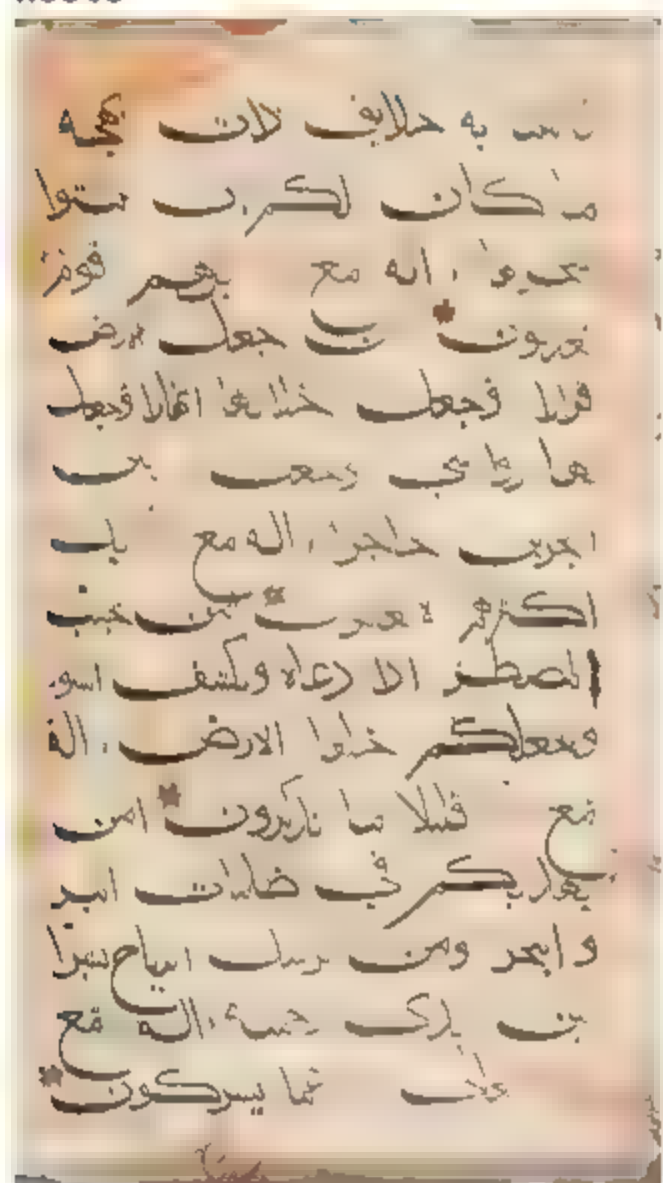 به حدايق ذات بهجه
ما كان لكم تنبتوا
اله مع بل هم قوم
يعدلون جعل الارض
قرارا وجعل خلالها انهارا وجعل
لها رواسي وجعل بين
البحرين حاجزا اله مع بل
اكثرهم لا يعلمون امن يجيب
المضطر اذا دعاه ويكشف السوء
ويجعلكم خلفا الارض اله
مع قليلا ما تذكرون امن
يهديكم في ظلمات البر
و البحر ومن يرسل الرياح بشرا
بين يدي رحمته اله مع
عما يشركون